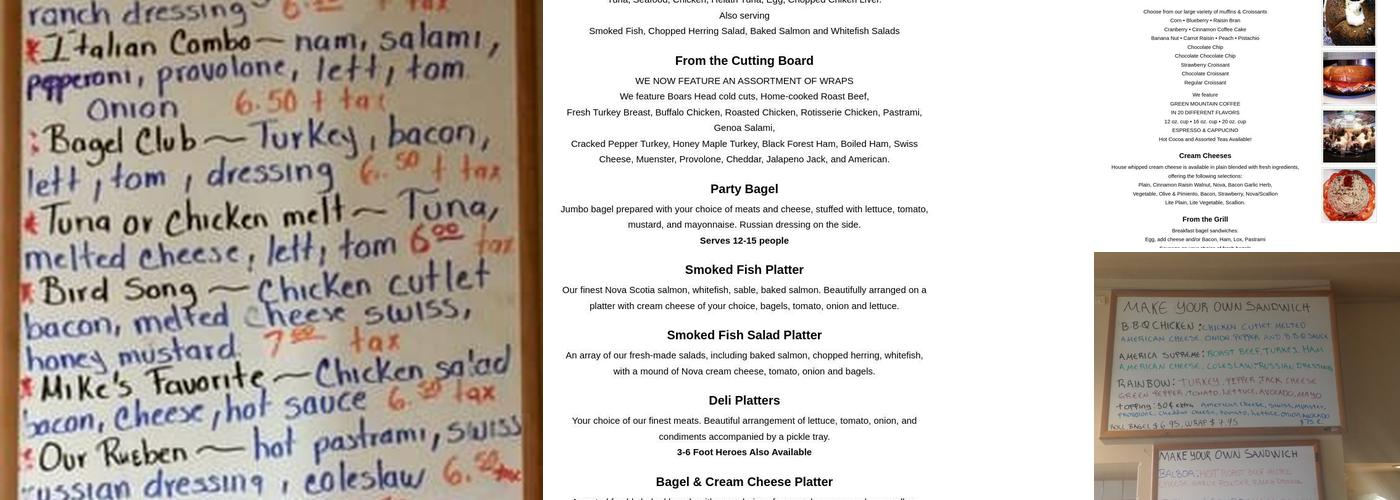 ranch dressing 6.50 + tax
Italian Combo ~ nam, salami,
pepperoni, provolone, lett, tom
Onion 6.50 + tax
Bagel Club ~ Turkey, bacon,
lett, tom, dressing 6.50 + tax
Tuna or Chicken melt ~ Tuna,
melted cheese, lett, tom 6.00 tax
Bird Song ~ Chicken cutlet
bacon, melted cheese swiss,
honey mustard 7.00 tax
Mike's Favorite ~ Chicken salad
bacon, cheese, hot sauce 6.50 tax
Our Rueben ~ hot pastrami, swiss
russian dressing, coleslaw 6.50 tax
Tuna, Seafood, Chicken, Helath Tuna, Egg, Chopped Chiken Liver.
Also serving
Smoked Fish, Chopped Herring Salad, Baked Salmon and Whitefish Salads
From the Cutting Board
WE NOW FEATURE AN ASSORTMENT OF WRAPS
We feature Boars Head cold cuts, Home-cooked Roast Beef,
Fresh Turkey Breast, Buffalo Chicken, Roasted Chicken, Rotisserie Chicken, Pastrami,
Genoa Salami,
Cracked Pepper Turkey, Honey Maple Turkey, Black Forest Ham, Boiled Ham, Swiss
Cheese, Muenster, Provolone, Cheddar, Jalapeno Jack, and American.
Party Bagel
Jumbo bagel prepared with your choice of meats and cheese, stuffed with lettuce, tomato,
mustard, and mayonnaise. Russian dressing on the side.
Serves 12-15 people
Smoked Fish Platter
Our finest Nova Scotia salmon, whitefish, sable, baked salmon. Beautifully arranged on a
platter with cream cheese of your choice, bagels, tomato, onion and lettuce.
Smoked Fish Salad Platter
An array of our fresh-made salads, including baked salmon, chopped herring, whitefish,
with a mound of Nova cream cheese, tomato, onion and bagels.
Deli Platters
Your choice of our finest meats. Beautiful arrangement of lettuce, tomato, onion, and
condiments accompanied by a pickle tray.
3-6 Foot Heroes Also Available
Bagel & Cream Cheese Platter
Choose from our large variety of muffins & Croissants
Corn • Blueberry • Raisin Bran
Cranberry • Cinnamon Coffee Cake
Banana Nut • Carrot Raisin • Peach • Pistachio
Chocolate Chip
Chocolate Chocolate Chip
Strawberry Croissant
Chocolate Croissant
Regular Croissant
We feature
GREEN MOUNTAIN COFFEE
IN 20 DIFFERENT FLAVORS
12 oz. cup • 16 oz. cup • 20 oz. cup
ESPRESSO & CAPPUCINO
Hot Cocoa and Assorted Teas Available!
Cream Cheeses
House whipped cream cheese is available in plain blended with fresh ingredients,
offering the following selections:
Plain, Cinnamon Raisin Walnut, Nova, Bacon Garlic Herb,
Vegetable, Olive & Pimiento, Bacon, Strawberry, Nova/Scallion
Lite Plain, Lite Vegetable, Scallion.
From the Grill
Breakfast bagel sandwiches:
Egg, add cheese and/or Bacon, Ham, Lox, Pastrami
MAKE YOUR OWN SANDWICH
B.B.Q CHICKEN: CHICKEN CUTLET MELTED
AMERICAN CHEESE, ONION, PEPPER AND B.B.Q SAUCE
AMERICA SUPREME: ROAST BEEF, TURKEY, HAM
AMERICAN CHEESE, COLESLAW, RUSSIAN DRESSING
RAINBOW: TURKEY, PEPPER JACK CHEESE
GREEN PEPPER, TOMATO, LETTUCE, AVOCADO, MAYO
topping: 50¢ extra American cheese, swiss, munster,
provolone, cheddar cheese, tomato, lettuce, onion, avocado
ROLL BAGEL $6.95, WRAP $7.95
MAKE YOUR OWN SANDWICH
BALBOA: HOT ROAST BEEF